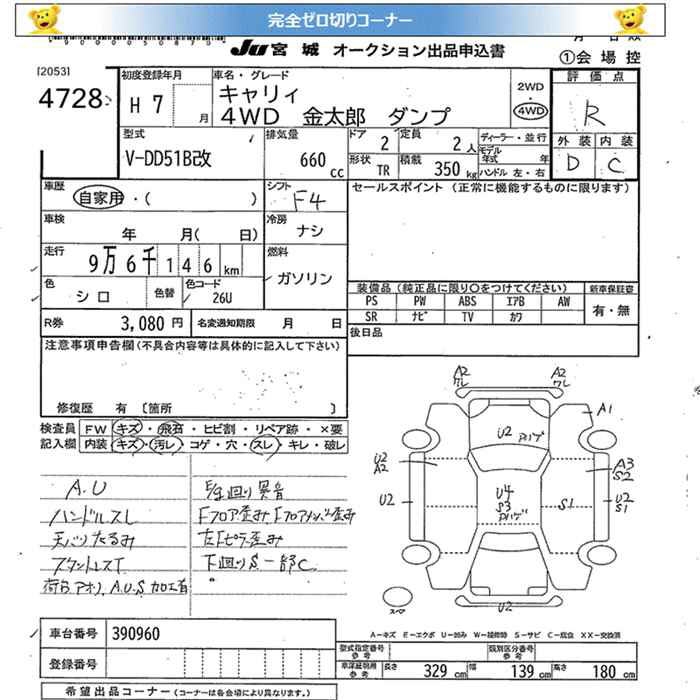 完全ゼロ切りコーナー
JU 宮城 オークション出品申込書
①会場控
[2053]
4728
初度登録年月
H 7 月
車名・グレード
キャリィ
4WD 金太郎 ダンプ
2WD
4WD
評価点
R
外装 内装
D C
型式
V-DD51B改
排気量
660 cc
ドア
2
定員
2人
形状
TR
積載
350 kg
ディーラー・並行
モデル年式 年
ハンドル 左・右
車歴
自家用・( )
シフト
F4
セールスポイント (正常に機能するものに限ります)
車検
年 月( 日)
冷房
ナシ
走行
9万6千146 km
燃料
ガソリン
色
シロ
色替
色コード
26U
装備品 (純正品に限り○をつけてください)
新車保証書
PS PW ABS エアB AW
有・無
SR ナビ TV カワ
R券 3,080 円
名変通知期限 月 日
後日品
注意事項申告欄 (不具合内容等は具体的に記入して下さい)
修復歴 有 [箇所 ]
検査員 FW キズ・飛石・ヒビ割・リペア跡・×要
記入欄 内装 キズ・汚レ・コゲ・穴・スレ・キレ・破レ
A.U
ハンドルスレ
天バリたるみ
下回り異音
Fフロア歪み Fフロアメンバー歪み
左Fピラー歪み
下回りS 一部C
荷台アオリ,A.U.S 加工有
A2
ワレ
A2
ワレ
A1
U2 ハゲ
U2
A2
A3
S2
U2
U4
S3
S1
U2
S1
U2
スペア
A-キズ E-エクボ U-凹み W-補修跡 S-サビ C-腐食 XX-交換済
車台番号 390960
登録番号
型式指定番号 参考
類別区分番号 参考
車庫証明用 参考 長さ 329 cm 幅 139 cm 高さ 180 cm
希望出品コーナー (コーナーは各会場により異なります。)